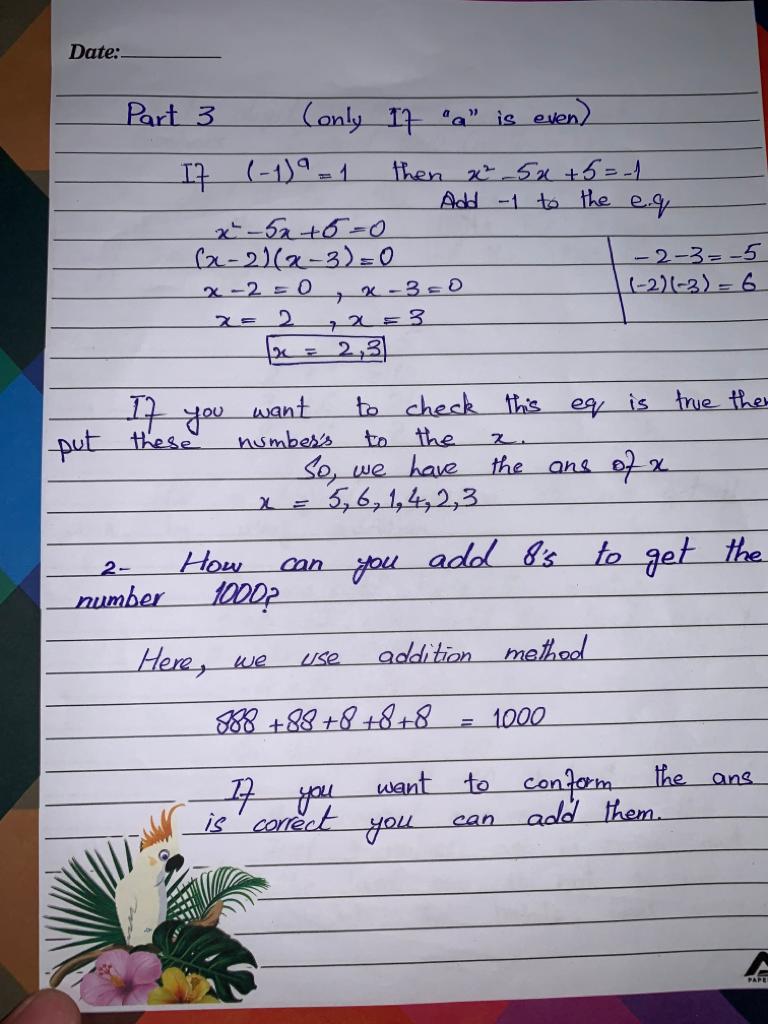 Date:
Part 3 (only If "a" is even)
If (-1)^a = 1 then x² - 5x + 5 = -1
Add -1 to the e.q
x² - 5x + 6 = 0
(x-2)(x-3) = 0
-2-3 = -5
x-2 = 0 , x-3 = 0
(-2)(-3) = 6
x = 2 , x = 3
x = 2,3
If you want to check this eq is true then
put these number's to the x.
So, we have the ans of x
x = 5,6,1,4,2,3
2- How can you add 8's to get the
number 1000?
Here, we use addition method
888 +88 +8 +8+8 = 1000
If you want to conform the ans
is correct you can add them.